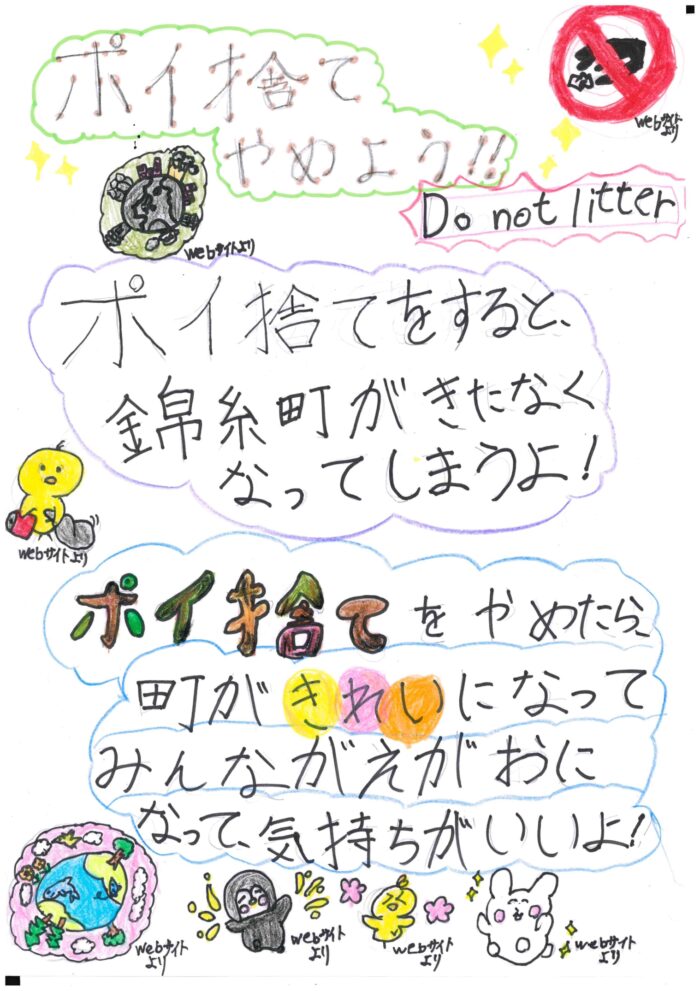 ポイ捨て
やめよう!!
webサイト
より
Do not litter
webサイトより
ポイ捨てをすると、
錦糸町がきたなく
なってしまうよ!
webサイトより
ポイ捨てをやめたら、
町がきれいになって
みんながえがおに
なって、気持ちがいいよ!
webサイト
より
webサイト
より
webサイト
より
webサイト
より